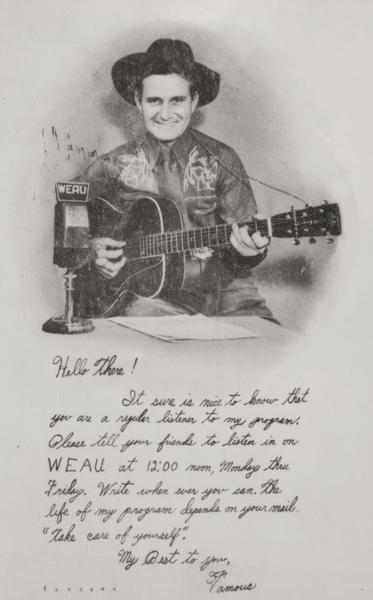 WEAU
Hello There!
It sure is nice to know that
you are a reguler listener to my program.
Please tell your friends to listen in on
WEAU at 12:00 noon, Monday thru
Friday. Write when ever you can. The
life of my program depends on your mail.
"Take care of yourself".
My Best to you,
Famous